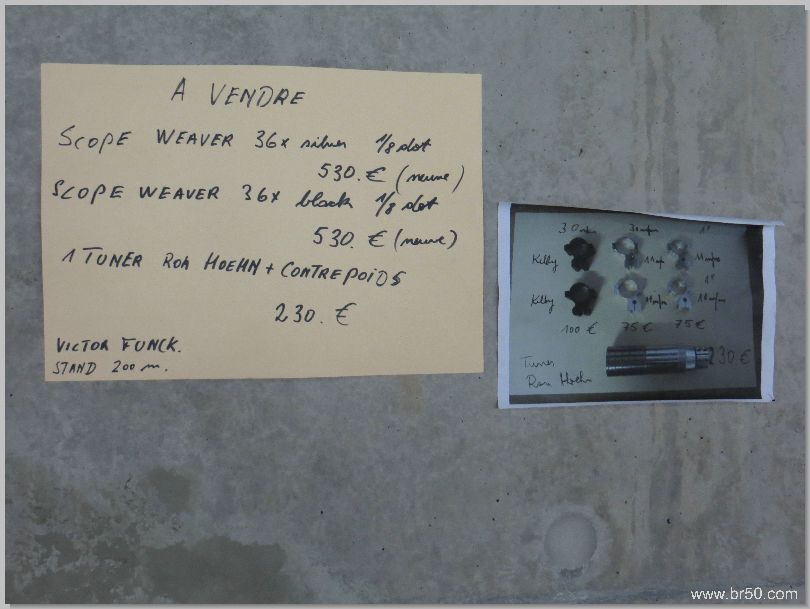 A VENDRE
SCOPE WEAVER 36x silver 1/8 dot
530. € (neuve)
SCOPE WEAVER 36x black 1/8 dot
530. € (neuve)
1 TUNER RON HOEHN + CONTREPOIDS
230. €
VICTOR FUNCK.
STAND 200 m.
30 1"
Kelby
Kelby 1"
100 € 75 € 75 €
Tuner 230 €
Ron Hoehn
www.br50.com